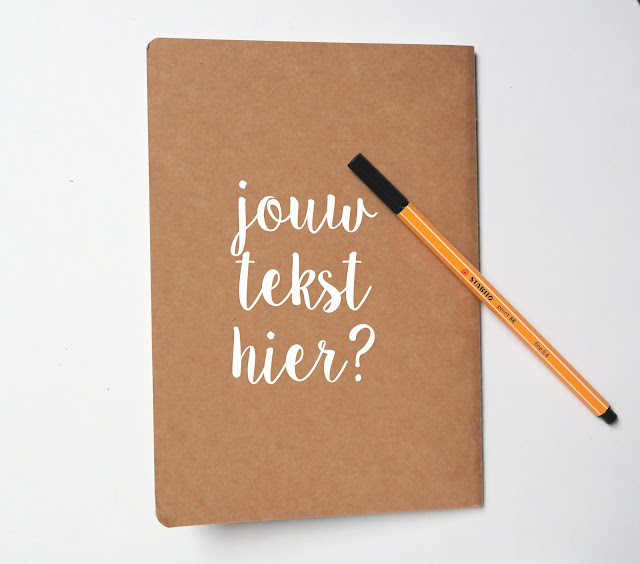 jouw
tekst
hier?
STABILO point 88 fine 0.4